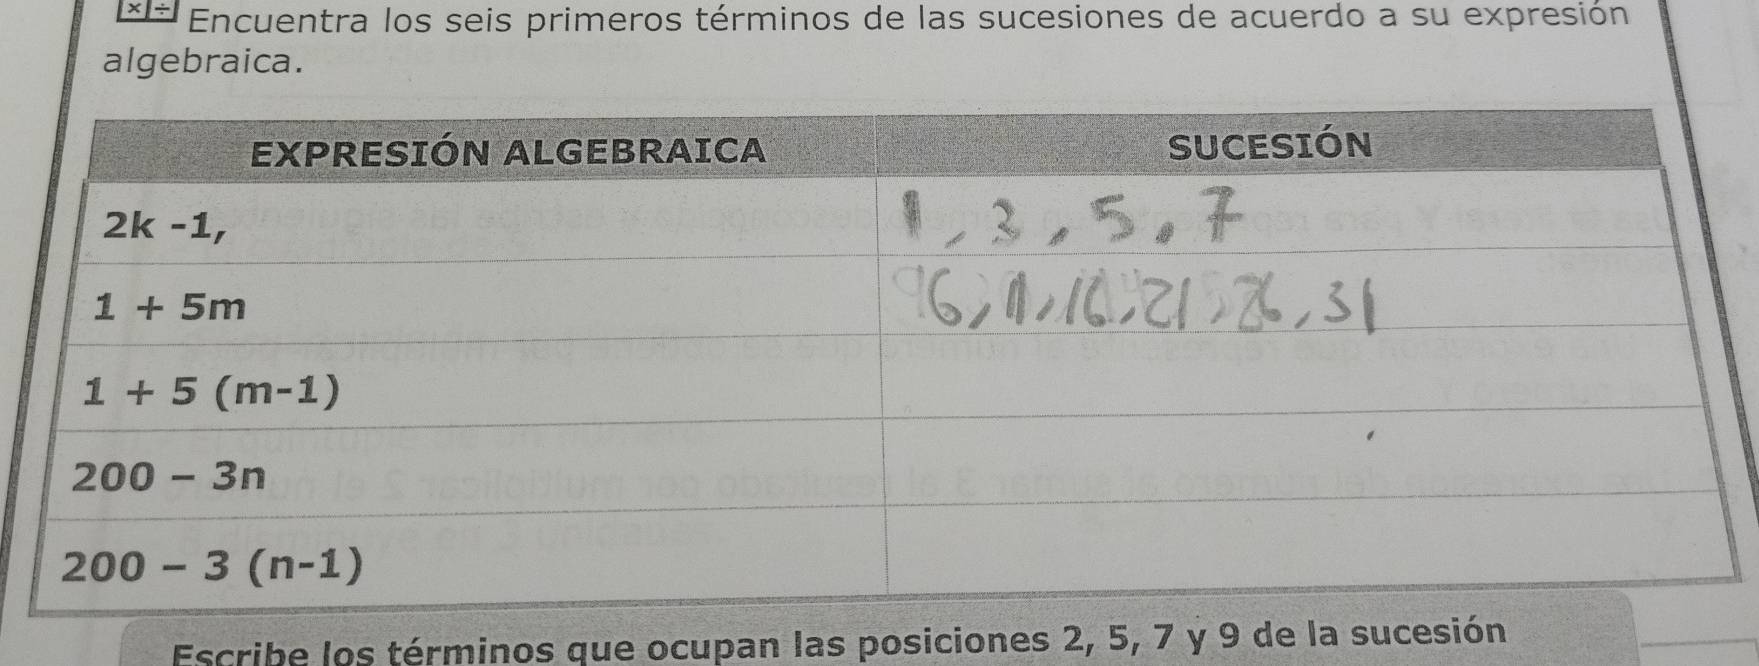 × ÷ Encuentra los seis primeros términos de las sucesiones de acuerdo a su expresión
algebraica.
EXPRESIÓN ALGEBRAICA SUCESIÓN
2k -1, 1, 3, 5, 7
1 + 5m 6, 11, 16, 21, 26, 31
1 + 5 (m-1)
200 - 3n
200 - 3 (n-1)
Escribe los términos que ocupan las posiciones 2, 5, 7 y 9 de la sucesión